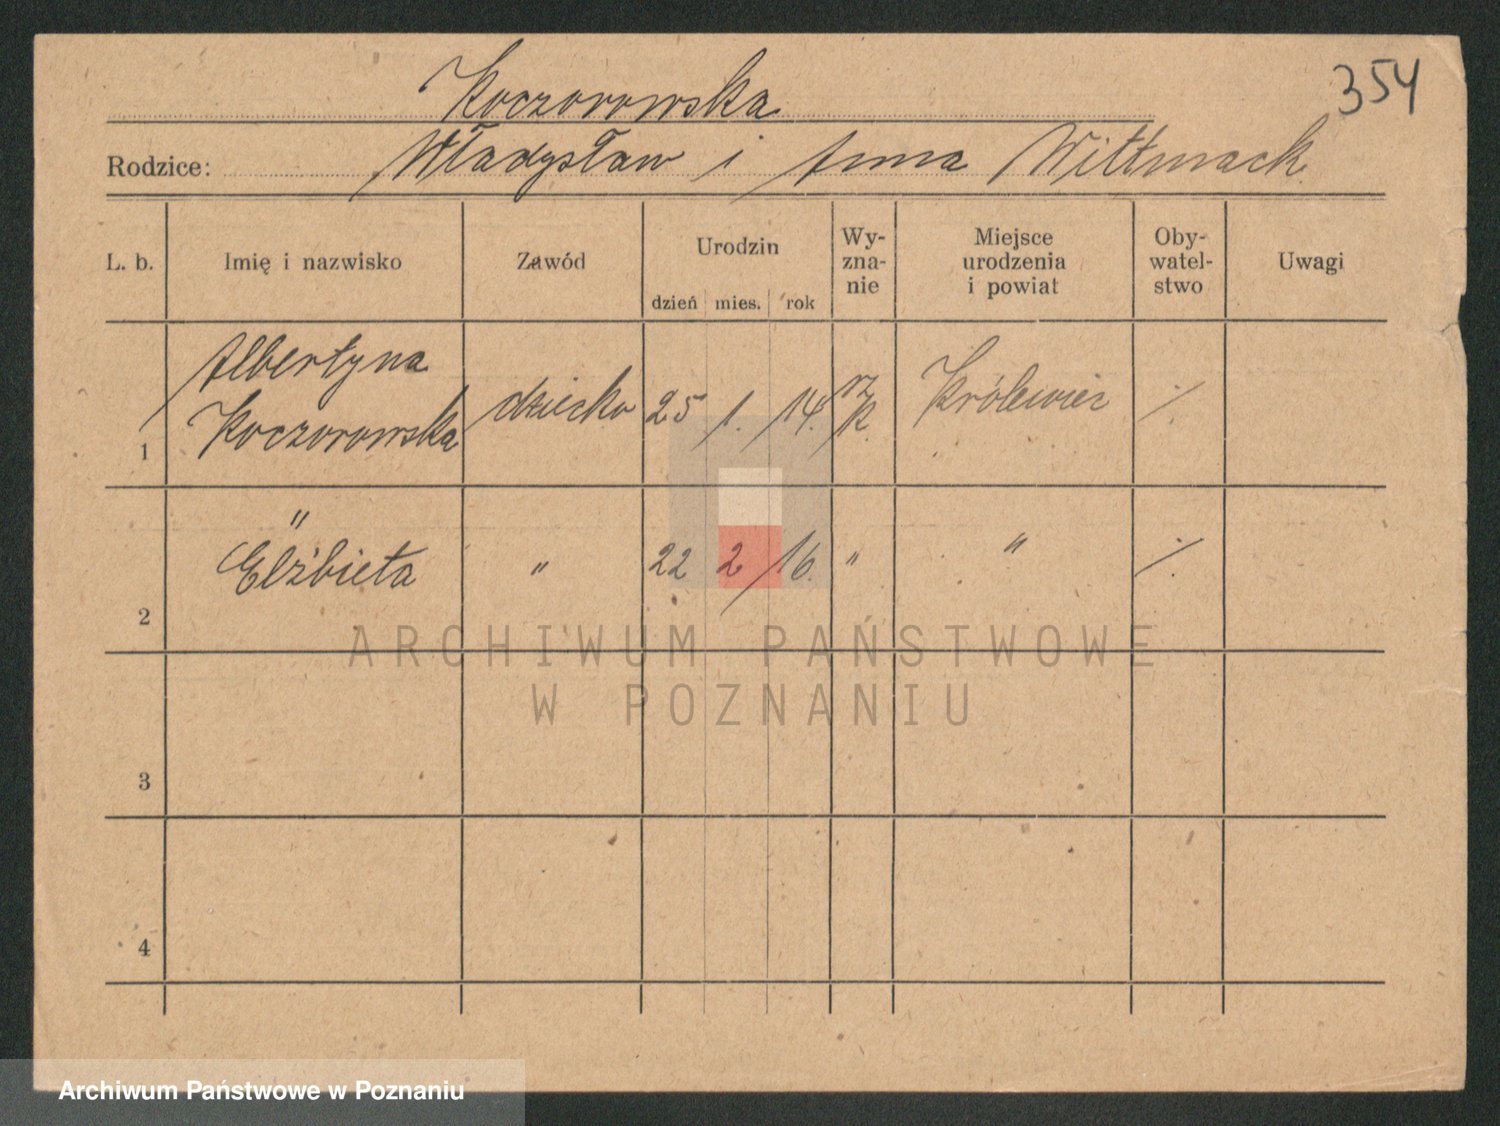 354
Koczorowska
Rodzice: Władysław i Anna Wittmack
L. b. Imię i nazwisko Zawód Urodzin Wy- zna- nie Miejsce urodzenia i powiat Oby- watel- stwo Uwagi
dzień mies. rok
1 Albertyna Koczorowska dziecko 25 1. 14. rz. k. Królewiec /.
2 " Elżbieta " 22 2 16. " " /.
3
4
ARCHIWUM PAŃSTWOWE
W POZNANIU
Archiwum Państwowe w Poznaniu